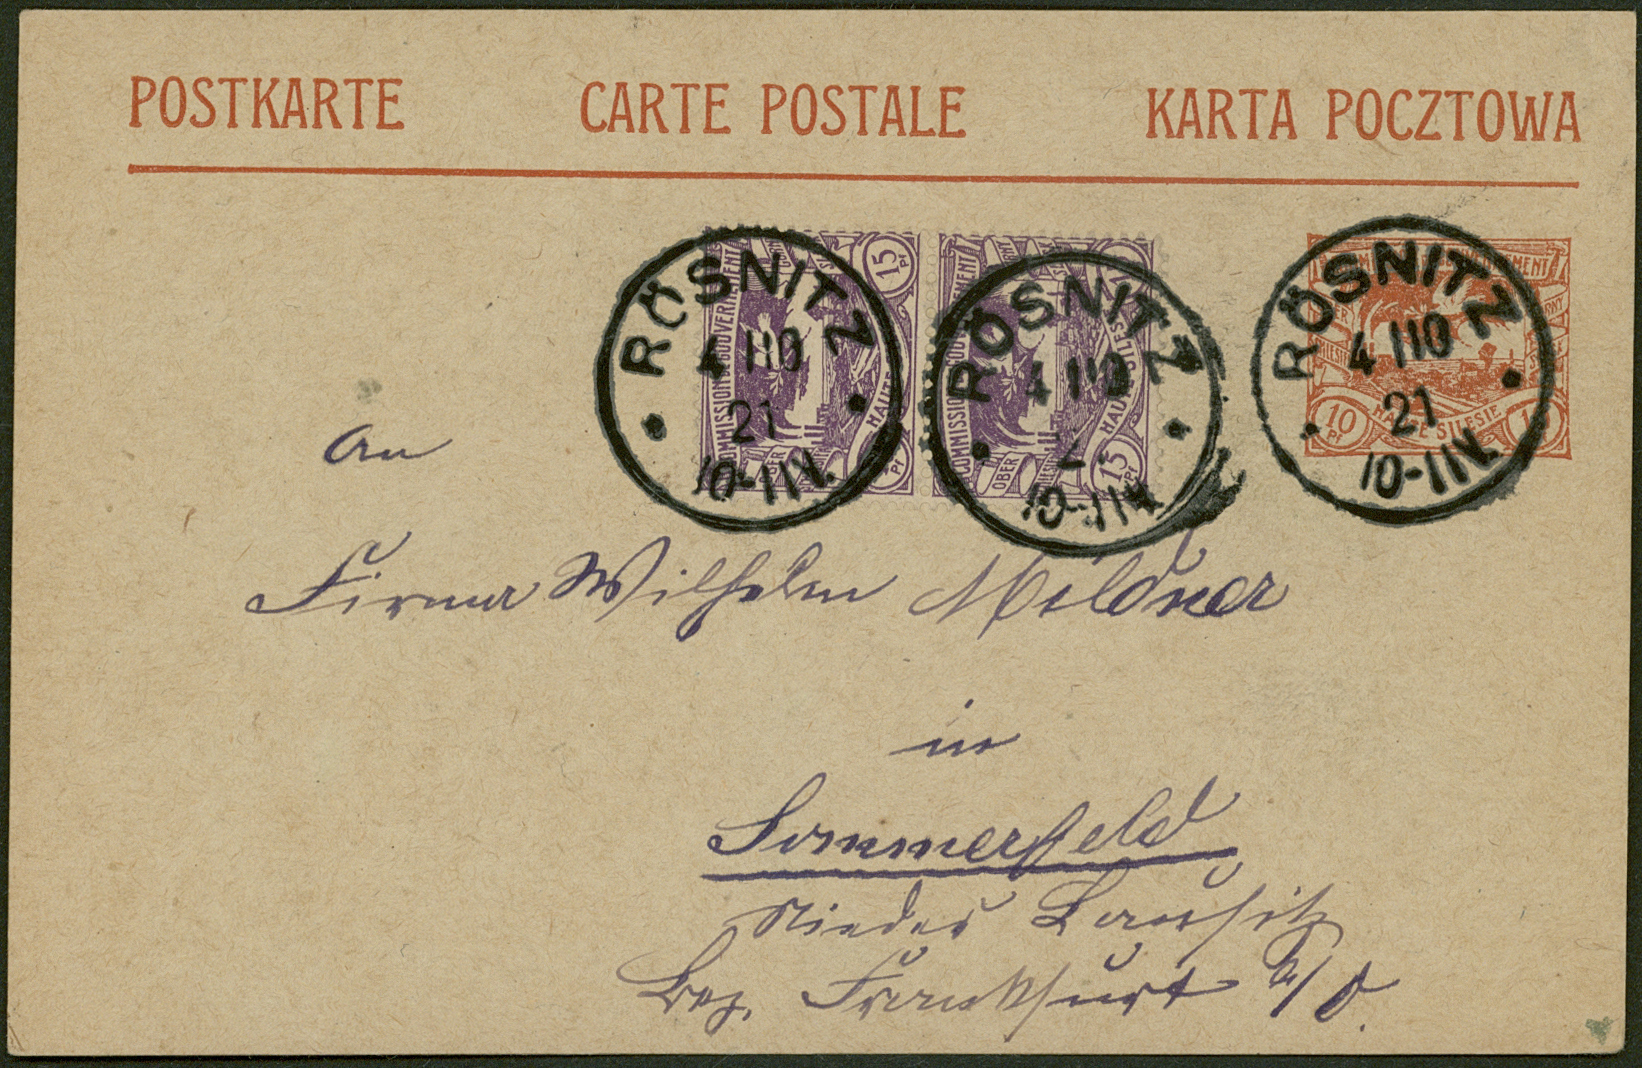 POSTKARTE CARTE POSTALE KARTA POCZTOWA
COMMISSION DE GOUVERNEMENT
HAUTE
OBER
15 Pf
COMMISSION GOUVERNEMENT
HAUTE SILESIE
OBER
15 Pf
GOUVERNEMENT
HAUTE SILESIE
10 Pf
RÖSNITZ
4 110
21
10-11V.
RÖSNITZ
4 110
2
10-11V.
RÖSNITZ
4 110
21
10-11V.
An
Firma Wilhelm Mildner
in
Sommerfeld
Nieder Lausitz
Bez. Frankfurt a/O.